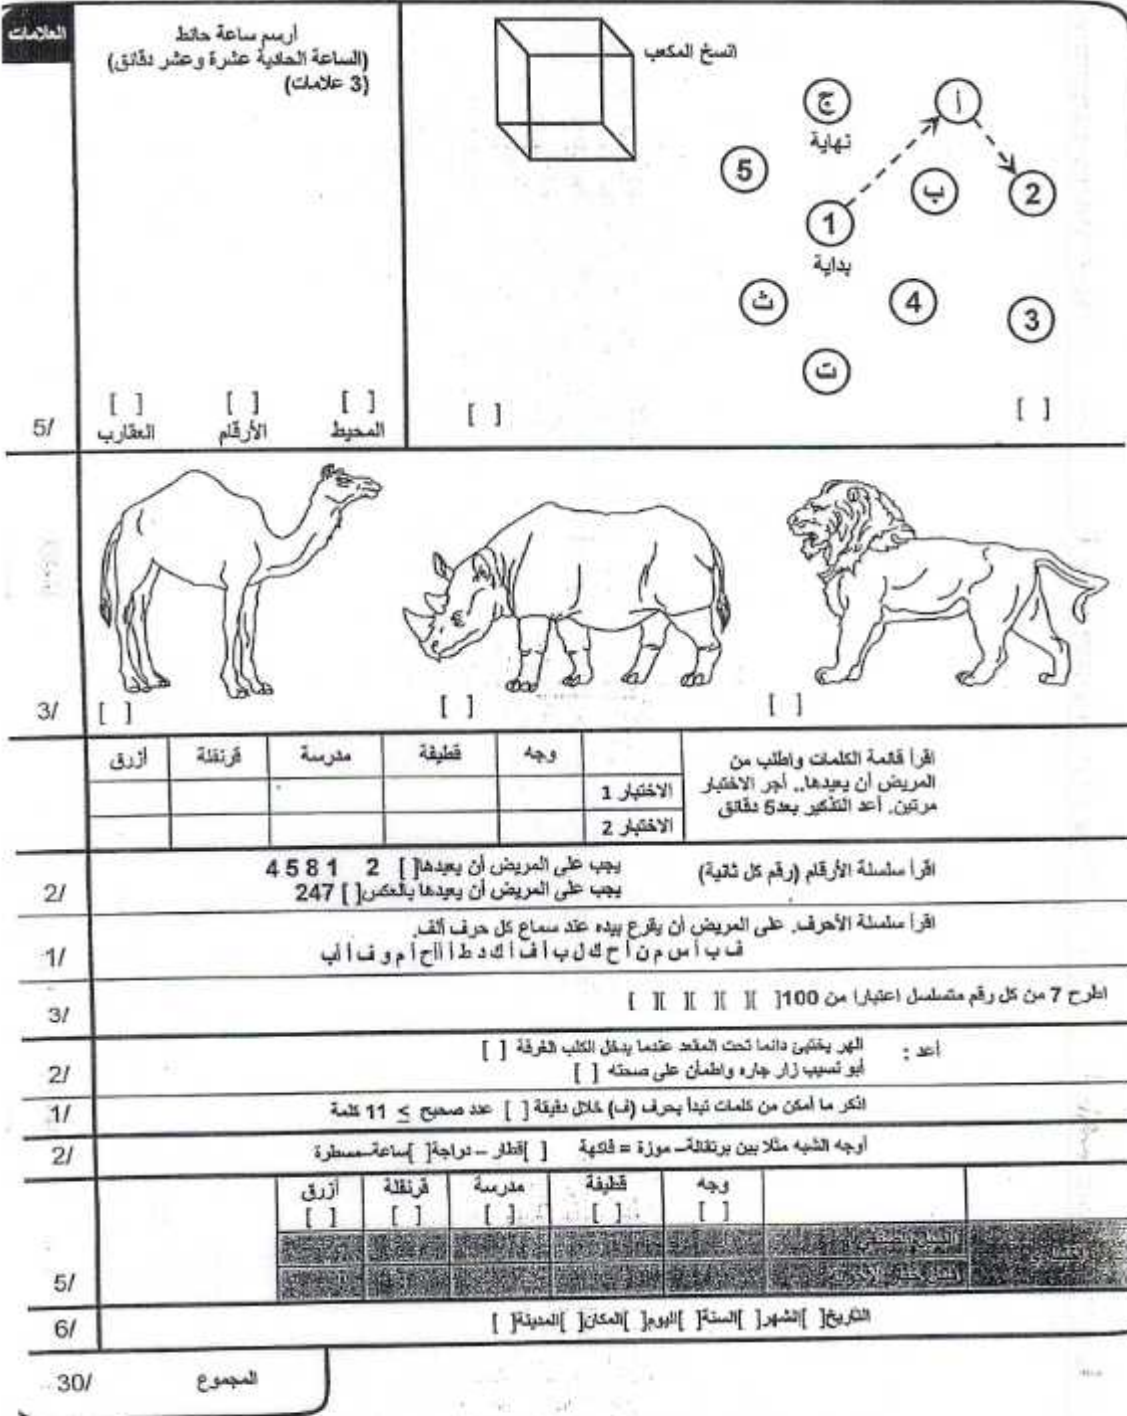 انسخ المكعب
أ
ج
نهاية
5
ب
2
1
بداية
ث
4
3
ت
[ ]
[ ]
أرسم ساعة حائط
(الساعة الحادية عشرة وعشر دقائق)
(3 علامات)
[ ] [ ] [ ]
المحيط الأرقام العقارب
العلامات
5/
[ ] [ ] [ ]
3/
اقرأ قائمة الكلمات واطلب من
المريض أن يعيدها.. أجر الاختبار
مرتين. أعد التذكير بعد5 دقائق
وجه قطيفة مدرسة قرنفلة أزرق
الاختبار 1
الاختبار 2
اقرأ سلسلة الأرقام (رقم كل ثانية) يجب على المريض أن يعيدها[ ] 2 1 8 5 4
يجب على المريض أن يعيدها بالعكس[ ] 247
2/
اقرأ سلسلة الأحرف. على المريض أن يقرع بيده عند سماع كل حرف ألف.
ف ب أ س م ن أ ح ك ل ب أ ف أ ك د ط أ أأح أ م و ف أ أب
1/
اطرح 7 من كل رقم متسلسل اعتبارا من 100[ ][ ][ ][ ][ ]
3/
أعد : الهر يختبئ دائما تحت المقعد عندما يدخل الكلب الغرفة [ ]
أبو نسيب زار جاره واطمأن على صحته [ ]
2/
اذكر ما أمكن من كلمات تبدأ بحرف (ف) خلال دقيقة [ ] عدد صحيح ≥ 11 كلمة
1/
أوجه الشبه مثلا بين برتقالة– موزة = فاكهة [ ]قطار – دراجة[ ]ساعة–مسطرة
2/
وجه قطيفة مدرسة قرنفلة أزرق
[ ] [ ] [ ] [ ] [ ]
5/
التاريخ[ ]الشهر[ ]السنة[ ]اليوم[ ]المكان[ ]المدينة[ ]
6/
المجموع
30/